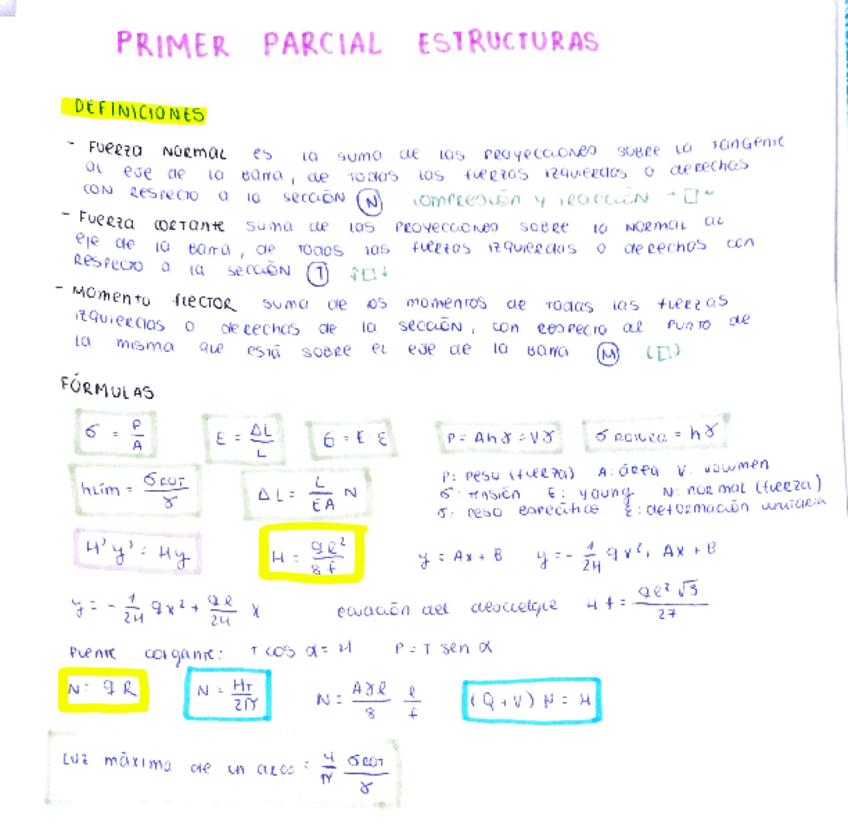 PRIMER PARCIAL ESTRUCTURAS
DEFINICIONES
- FUERZA NORMAL es la suma de las proyecciones sobre la tangente
al eje de la barra, de todas las fuerzas izquierdas o derechas
con respecto a la sección (N) compresión y tracción
- FUERZA CORTANTE suma de las proyecciones sobre la normal al
eje de la barra, de todas las fuerzas izquierdas o derechas con
respecto a la sección (T) ↑□↓
- MOMENTO FLECTOR suma de los momentos de todas las fuerzas
izquierdas o derechas de la sección, con respecto al punto de
la misma que está sobre el eje de la barra (M) (□)
FÓRMULAS
σ = P/A   ε = ΔL/L   σ = E·ε   P = Ahγ = Vγ   σ = hγ
hlím = σrot/γ   ΔL = L/EA N   P: peso (fuerza) A: área V: volumen
σ: tensión E: young N: normal (fuerza)
γ: peso específico ε: deformación unitaria
H'y' = Hy   H = qℓ²/8f   y = Ax + B   y = - 1/2H qx², Ax + B
y = - 1/2H qx² + qℓ/2H x   ecuación del descuelgue Hf = qℓ²√3/27
Puente colgante: T cos α = H   P = T sen α
N = qR   N = HT/2π   N = Aγℓ/8 ℓ/f   (Q+V) N = H
Luz máxima de un arco = 4/π σrot/γ